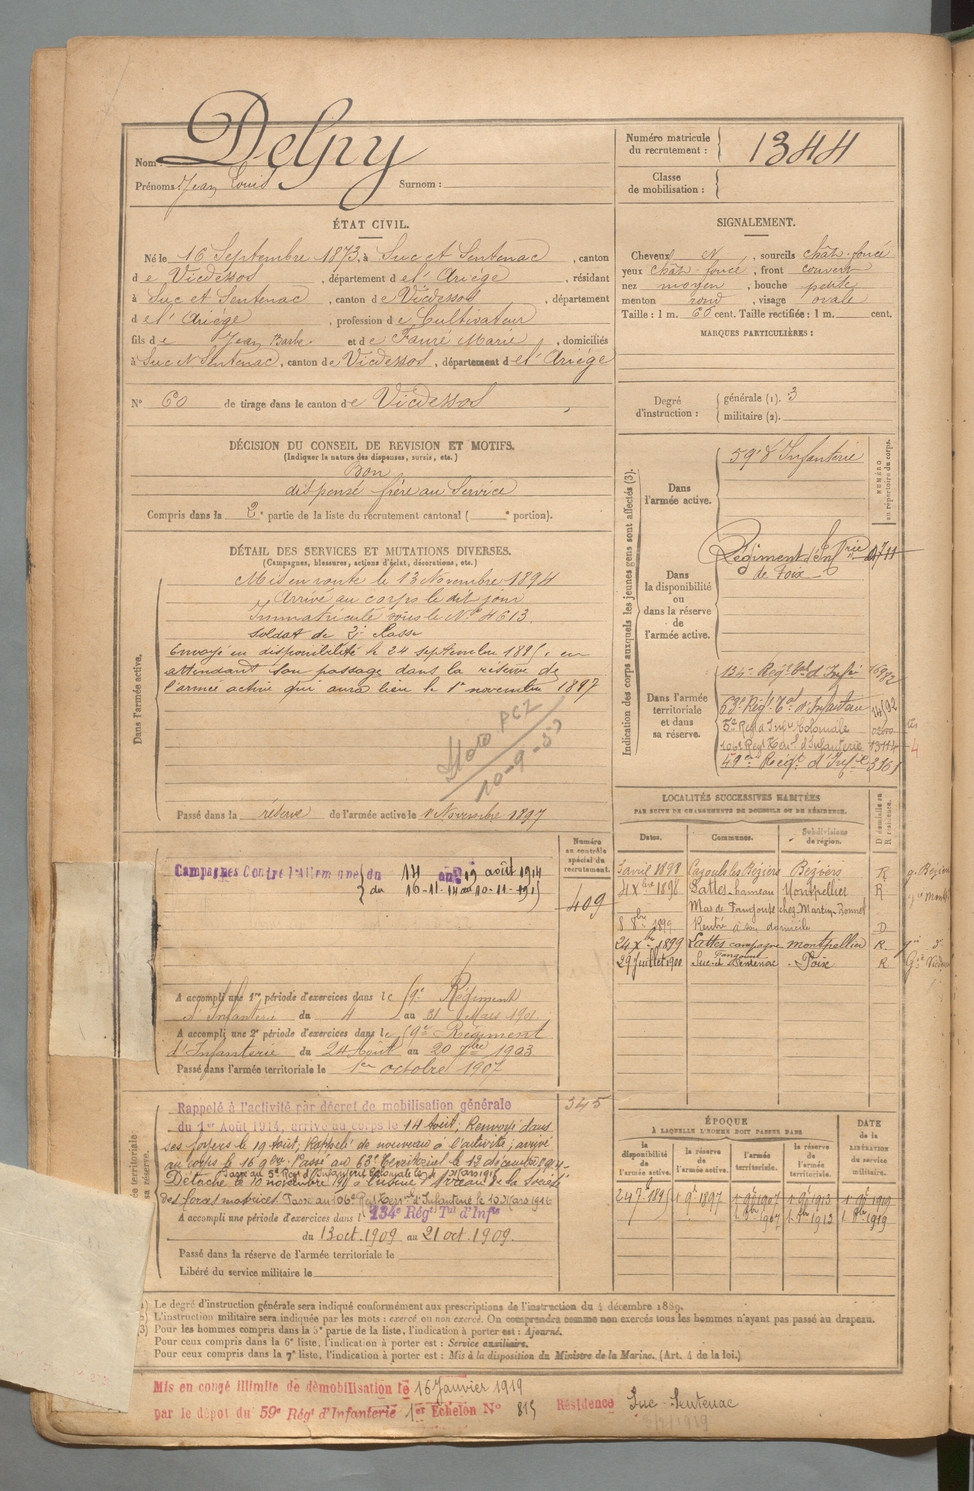 Nom : Delpy
Prénoms : Jean Louis Surnom :
Numéro matricule du recrutement : 1344
Classe de mobilisation :
ÉTAT CIVIL.
Né le 16 Septembre 1873, à Suc et Sentenac, canton
de Vicdessos, département de l'Ariège, résidant
à Suc et Sentenac, canton de Vicdessos, département
de l'Ariège, profession de Cultivateur
fils de Jean Barbe et de Fauré Marie, domiciliés
à Suc et Sentenac, canton de Vicdessos, département de l'Ariège
N° 60 de tirage dans le canton de Vicdessos
SIGNALEMENT.
Cheveux N, sourcils chât-foncé
yeux chât-foncé, front couvert
nez moyen, bouche petite
menton rond, visage ovale
Taille : 1 m. 60 cent. Taille rectifiée : 1 m. cent.
MARQUES PARTICULIÈRES :
Degré d'instruction : générale (1). 3
militaire (2).
DÉCISION DU CONSEIL DE REVISION ET MOTIFS.
(Indiquer la nature des dispenses, sursis, etc.)
Bon
dispensé frère au Service
Compris dans la 2e partie de la liste du recrutement cantonal ( e portion).
DÉTAIL DES SERVICES ET MUTATIONS DIVERSES.
(Campagnes, blessures, actions d'éclat, décorations, etc.)
Dans l'armée active.
Mis en route le 13 Novembre 1894
Arrivé au corps le dit jour
Immatriculé sous le N° 4613
soldat de 2e classe
Envoyé en disponibilité le 24 septembre 1895, en
attendant son passage dans la réserve de
l'armée active qui aura lieu le 1er novembre 1897
10-9-
Passé dans la réserve de l'armée active le 1er Novembre 1897
Indication des corps auxquels les jeunes gens sont affectés (3).
NUMÉRO au répertoire du corps.
Dans l'armée active.
59e d'Infanterie
Dans la disponibilité ou dans la réserve de l'armée active.
Régiment d'Inf
de Foix
Dans l'armée territoriale et dans sa réserve.
134e Regt Tal d'Infie
63e Régt Tal d'Infanterie
5e Regt d'Infie Coloniale
106e Regt Terial d'Infanterie
49me Regt d'Infie
LOCALITÉS SUCCESSIVES HABITÉES
PAR SUITE DE CHANGEMENTS DE DOMICILE OU DE RÉSIDENCE.
Dates. Communes. Subdivisions de région. D domicile ou R résidence.
avril 1898 Béziers R
4 Xbre 1898 Lattes-hameau Montpellier R
Mas de chez Martin
8 8bre 1899 Rentré à son domicile D
24 Xbre 1899 Lattes campagne Montpellier R
29 Juillet 1900 Suc et Sentenac Foix R
Numéro au contrôle spécial du recrutement.
409
Campagnes Contre l'Allemagne du 14 au 19 août 1914
du 16-11-14 au 10-11-1915
A accompli une 1re période d'exercices dans le Régiment
d'Infanterie du 4 au 31 Mars 1901
A accompli une 2e période d'exercices dans le Régiment
d'Infanterie du 24 Août au 20 7bre 1903
Passé dans l'armée territoriale le 1er octobre 1907
345
Rappelé à l'activité par décret de mobilisation générale
du 1er Août 1914, arrivé au corps le 14 Août, Renvoyé dans
ses foyers le 19 Août, Rappelé de nouveau à l'activité; arrivé
au corps le 16 9bre. Passé au 63e Territorial le 13 décembre 1914
Passé au 5e Regt d'Infanterie coloniale
Détaché le 10 novembre 1915 à l'usine de la Société
des forces motrices. Passé au 106e Regt Terial d'Infanterie le 10 Mars 1916
A accompli une période d'exercices dans l 134e Régt Tal d'Infie
du 13 oct. 1909 au 21 oct. 1909.
Passé dans la réserve de l'armée territoriale le
Libéré du service militaire le
ÉPOQUE
A LAQUELLE L'HOMME DOIT PASSER DANS
la disponibilité de l'armée active. la réserve de l'armée active. l'armée territoriale. la réserve de l'armée territoriale.
DATE de la LIBÉRATION du service militaire.
24 7bre 1895 1 9bre 1897 1 9bre 1907 1 9bre 1913 1 9bre 1919
1 8bre 1907 1 8bre 1913 1 8bre 1919
(1) Le degré d'instruction générale sera indiqué conformément aux prescriptions de l'instruction du 4 décembre 1889.
(2) L'instruction militaire sera indiquée par les mots : exercé ou non exercé. On comprendra comme non exercés tous les hommes n'ayant pas passé au drapeau.
(3) Pour les hommes compris dans la 5e partie de la liste, l'indication à porter est : Ajourné.
Pour ceux compris dans la 6e liste, l'indication à porter est : Service auxiliaire.
Pour ceux compris dans la 7e liste, l'indication à porter est : Mis à la disposition du Ministre de la Marine. (Art. 4 de la loi.)
Mis en congé illimité de démobilisation le 16 Janvier 1919
par le dépôt du 59e Régt d'Infanterie 1er Echelon N° 815 Résidence Suc-Sentenac